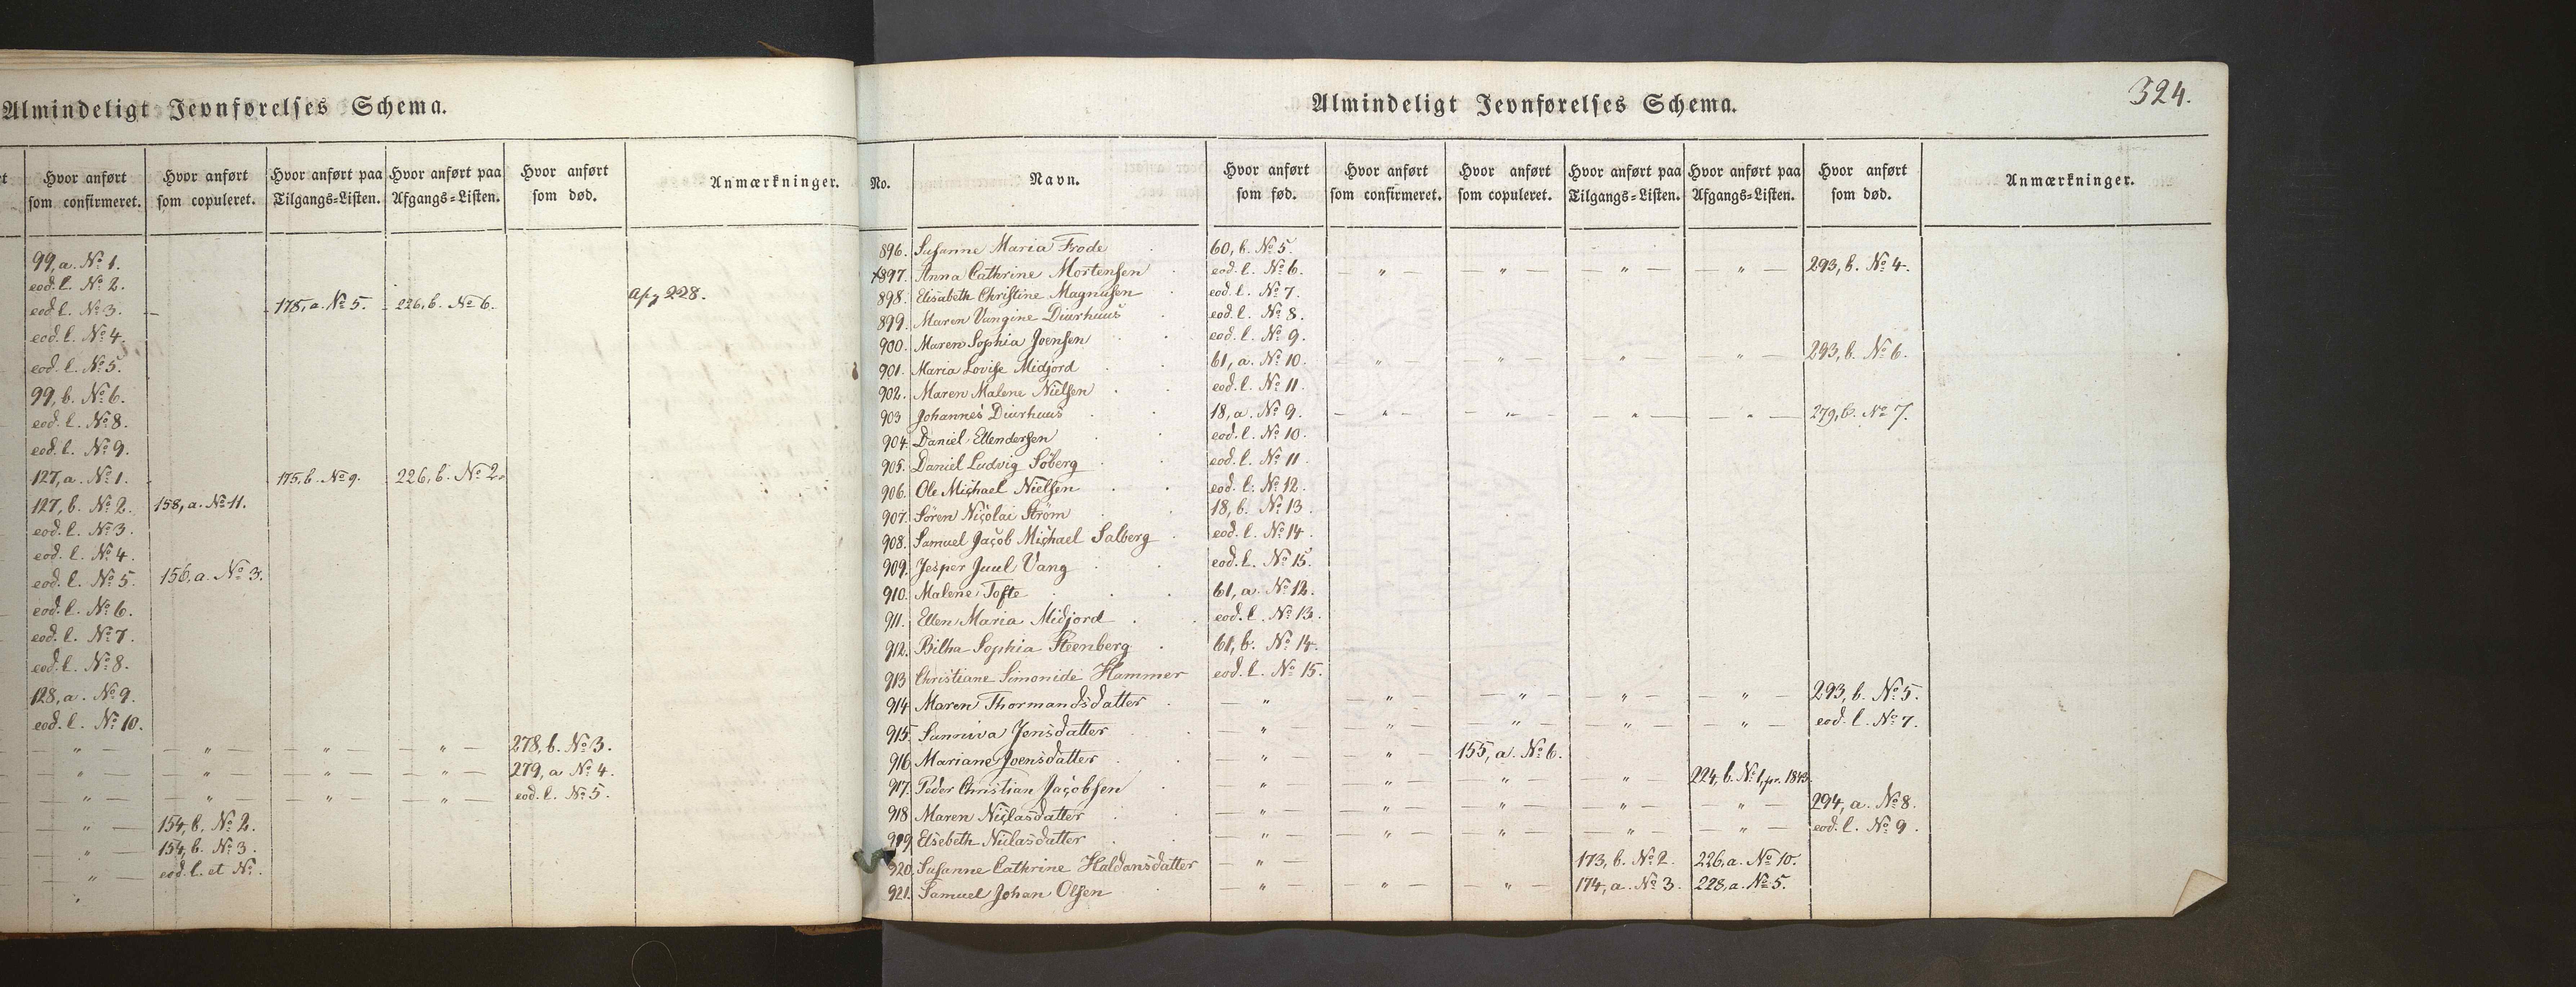 Almindeligt Jevnførelses Schema.
Hvor anført som confirmeret. Hvor anført som copuleret. Hvor anført paa Tilgangs-Listen. Hvor anført paa Afgangs-Listen. Hvor anført som død. Anmærkninger.
99, a. No 1.
eod. l. No 2.
eod l. No 3. — 178, a. No 5. 226, b. No 6. 228.
eod. l. No 4.
eod. l. No 5.
99, b. No 6.
eod. l. No 8.
eod. l. No 9.
127, a. No 1. 175, b. No 9. 226, b. No 2.
127, b. No 2. 158, a. No 11.
eod. l. No 3.
eod. l. No 4.
eod. l. No 5. 156, a. No 3.
eod. l. No 6.
eod. l. No 7.
eod. l. No 8.
128, a. No 9.
eod. l. No 10.
— " — — " — — " — — " — 278, b. No 3.
— " — — " — — " — — " — 279, a No 4.
— " — — " — — " — — " — eod. l. No 5.
— " — 154, b. No 2.
— " — 154, b. No 3.
— " — eod. l. et No.
"
324.
Almindeligt Jevnførelses Schema.
No. Navn. Hvor anført som fød. Hvor anført som confirmeret. Hvor anført som copuleret. Hvor anført paa Tilgangs-Listen. Hvor anført paa Afgangs-Listen. Hvor anført som død. Anmærkninger.
896. Susanne Maria Frode 60, b. No 5.
897. Anna Cathrine Mortensen eod. l. No 6. — " — — " — — " — — " — 293, b. No 4.
898. Elisabeth Christine Magnusen eod. l. No 7.
899. Maren Vangine Diurhuus eod. l. No 8.
900. Maren Sophia Joensen eod. l. No 9.
901. Maria Lovise Midjord 61, a. No 10. — " — — " — — " — — " — 293, b. No 6.
902. Maren Malene Nielsen eod. l. No 11.
903 Johannes Diurhuus 18, a. No 9. — " — — " — — " — — " — 279, b. No 7.
904. Daniel Ellendersen eod. l. No 10.
905. Daniel Ludvig Søberg eod. l. No 11.
906. Ole Michael Nielsen eod. l. No 12.
907. Søren Nicolai Strøm 18, b. No 13.
908. Samuel Jacob Michael Salberg eod. l. No 14.
909. Jesper Juul Vang eod. l. No 15.
910. Malene Tofte 61, a. No 12.
911. Ellen Maria Midjord eod. l. No 13.
912. Bilha Sophia Steenberg 61, b. No 14.
913 Christiane Simonide Hammer eod. l. No 15.
914 Maren Thormandsdatter — " — — " — — " — — " — — " — 293, b. No 5.
915. Sanniva Jensdatter — " — — " — — " — — " — — " — eod. l. No 7.
916 Mariane Joensdatter — " — — " — 155, a. No 6.
917. Peder Christian Jacobsen — " — — " — — " — — " — 224, b. No 1, pr. 1843.
918 Maren Niclasdatter — " — — " — — " — — " — — " — 294, a. No 8.
919 Elsebeth Niclasdatter — " — — " — — " — — " — — " — eod. l. No 9.
920. Susanne Cathrine Haldansdatter — " — 173, b. No 2. 226, a. No 10.
921. Samuel Johan Olsen — " — — " — — " — 174, a. No 3. 228, a. No 5.